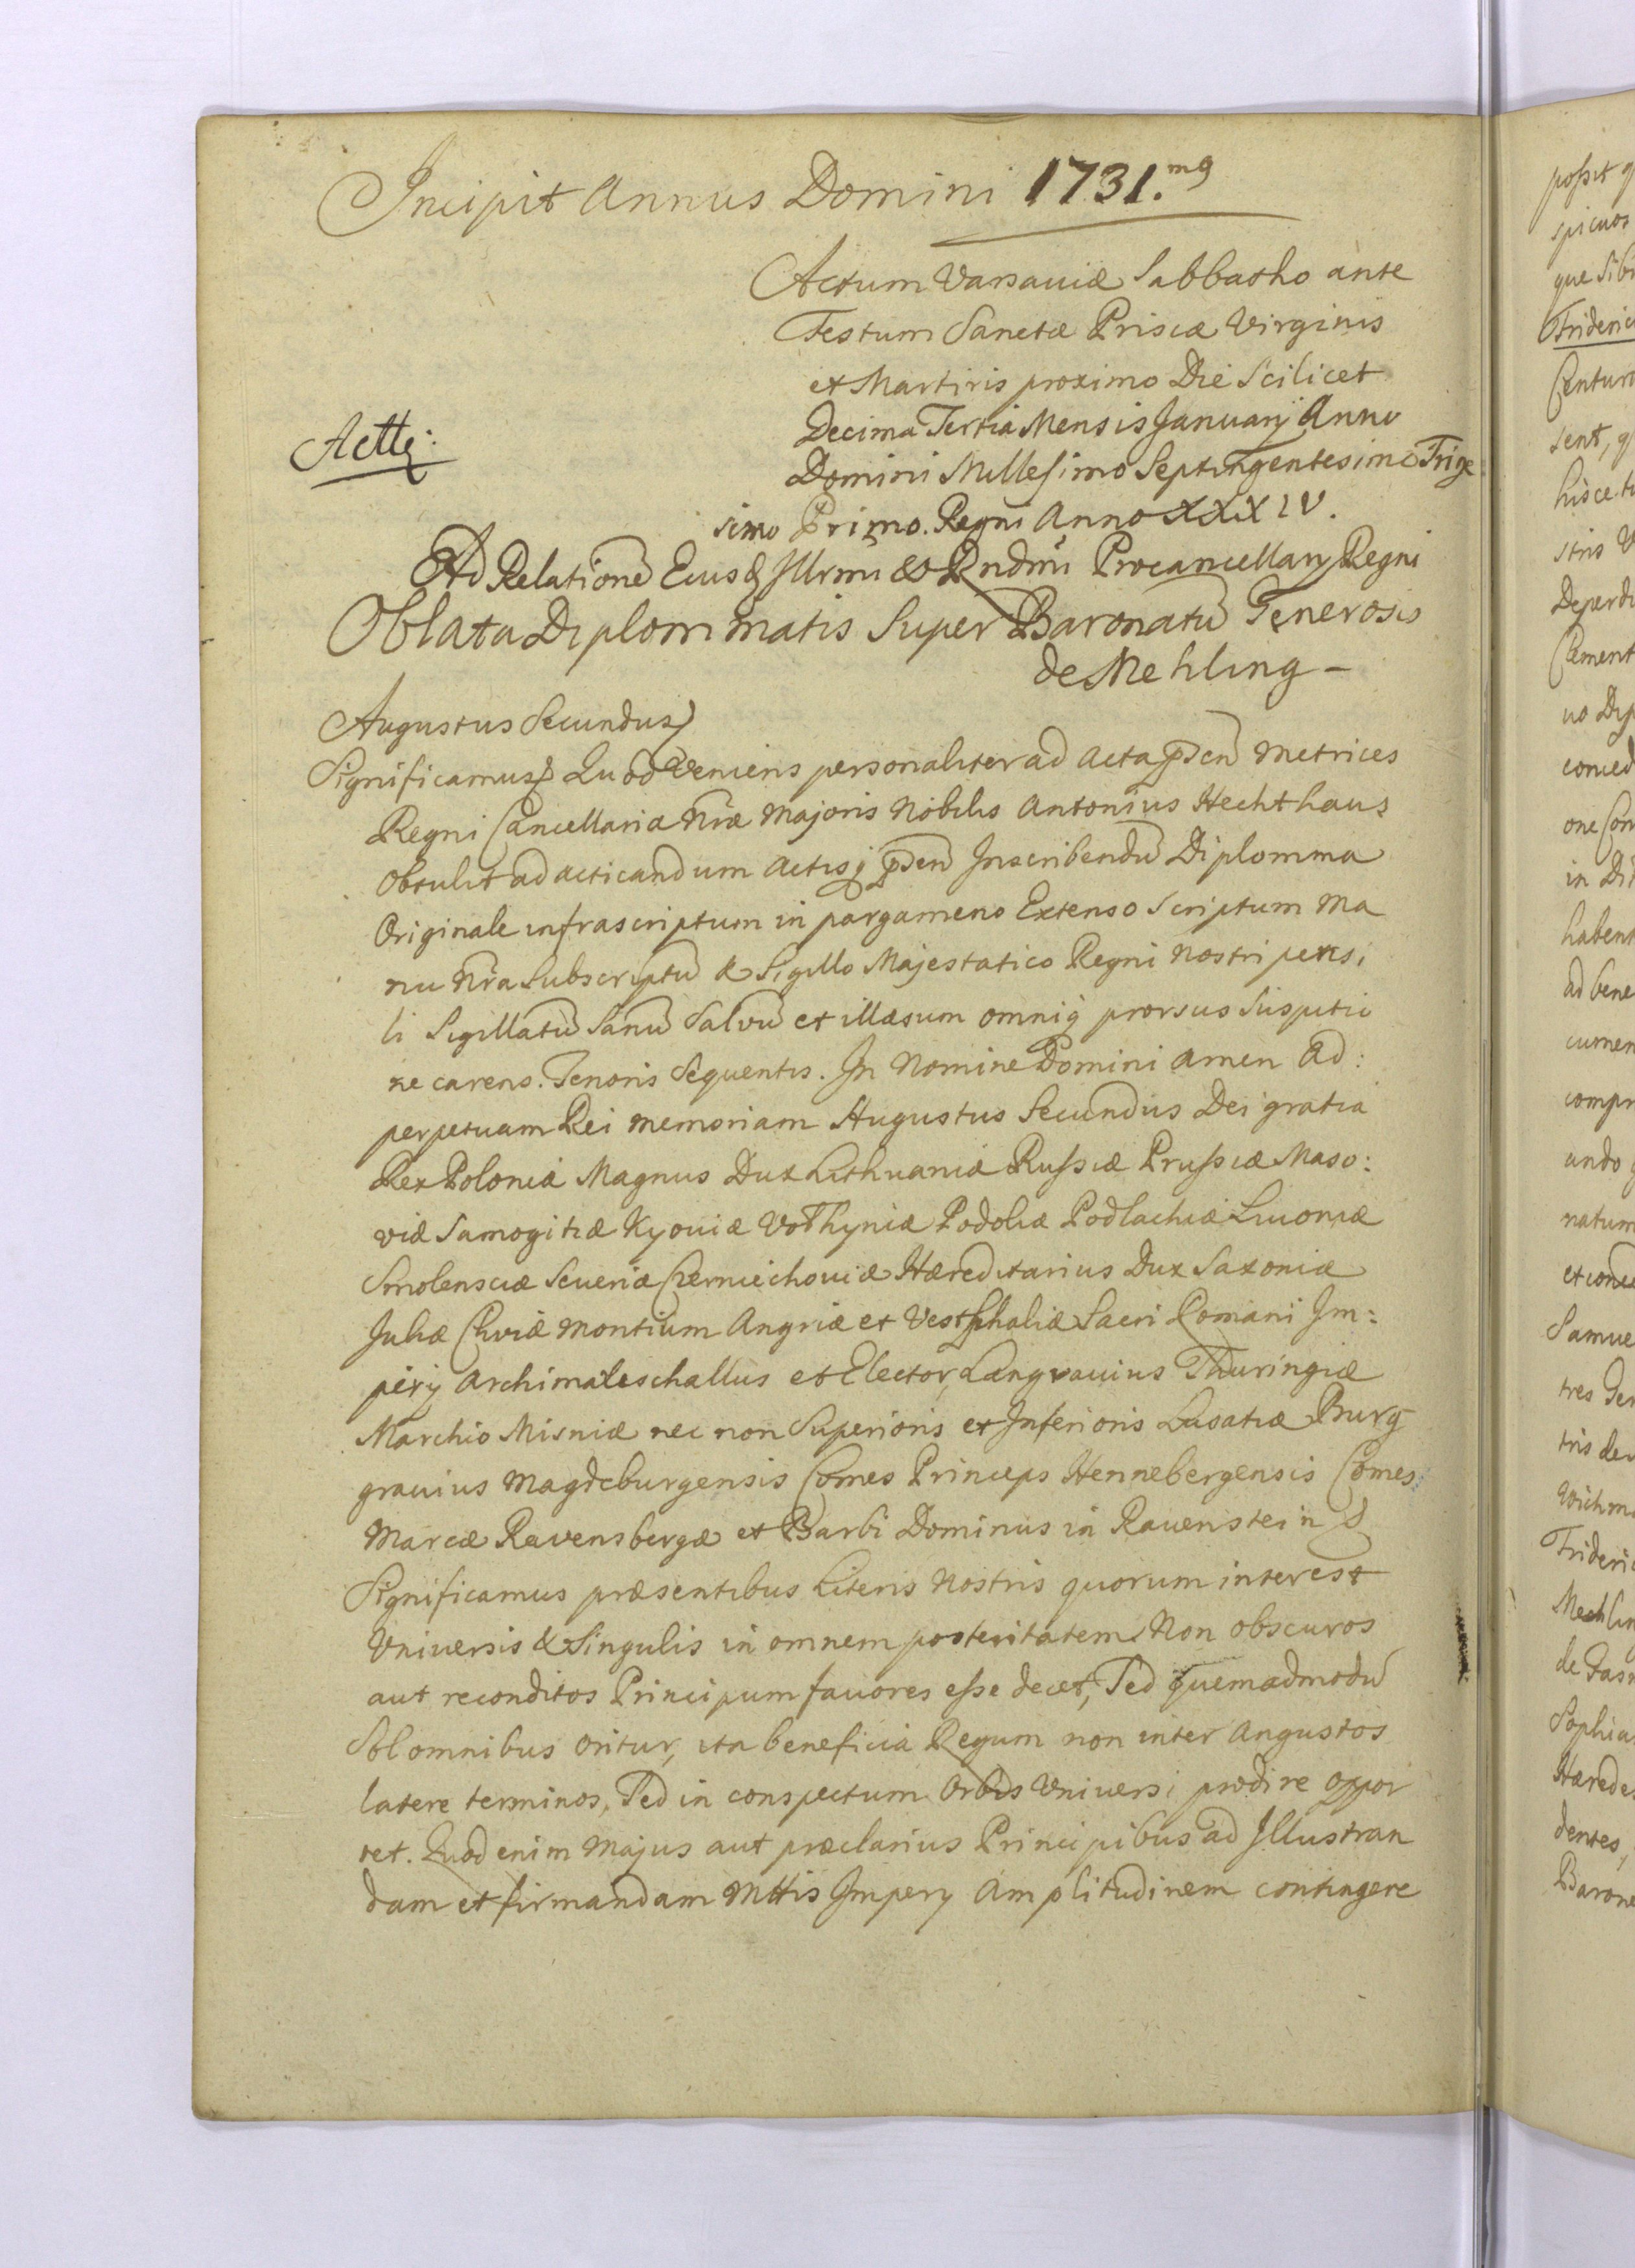 Incipit Annus Domini 1731.mq
Actum Varsaviæ Sabbatho ante
Festum Sanctæ Priscæ Virginis
et Martiris proximo Die Scilicet
Decima Tertia Mensis Januarij Anno
Domini Millesimo Septingentesimo Trige
simo Primo. Regni Anno XXXIV.
Actt:
Ad Relatione Eiusd Illrmi & Rndmi Procancellarij Regni
Oblata Diplommatis Super Baronatu Generosis
de Mehling –
Augustus Secundus
Significamus Quod Veniens personaliter ad Acta psen Metrices
Regni Cancellaria Nræ Majoris Nobilis Antonius Hechthaus
Obtulit ad acticandum Actisq psen Inscribendu Diplomma
Originale infrascriptum in pargameno Extenso Scriptum Ma
nu Nra Subscriptu & Sigillo Majestatico Regni Nostri pensi
li Sigillatu Sanu Salvu et illæsum omniq prorsus Suspitio
ne carens. Tenoris Sequentis. In Nomine Domini Amen Ad:
perpetuam Rei memoriam Augustus Secundus Dei gratia
Rex Poloniæ Magnus Dux Lithuaniæ Russiæ Prussiæ Maso:
viæ Samogitiæ Kyoviæ Volhyniæ Podoliæ Podlachiæ Livoniæ
Smolensciæ Severiæ Czerniechoviæ Hæreditarius Dux Saxoniæ
Juliæ Cliviæ Montium Angriæ et Vestphaliæ Sacri Romani Im:
perij Archimareschallus et Elector, Langravius Thuringiæ
Marchio Misniæ nec non Superioris et Inferioris Lusatiæ Burg
gravius Magdeburgensis Comes Princeps Hennebergensis Comes
Marcæ Ravensbergæ et Barbi Dominus in Ravenstein
Significamus præsentibus Literis Nostris quorum interest
Universis & Singulis in omnem posteritatem. Non obscuros
aut reconditos Principum favores esse decet, Sed quemadmodu
Sol omnibus oritur, ita beneficia Regum non inter Angustos
latere terminos, Sed in conspectum Orbis Universi prodire oppor
tet. Quod enim Majus aut præclarius Principibus ad Illustran
dam et firmandam Mttis Imperij Amplitudinem contingere